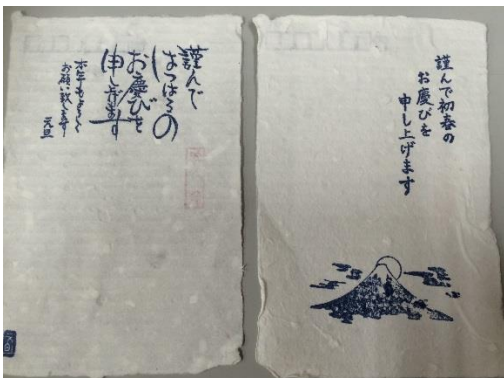 謹んで
はつはるの
お慶びを
申し上げます
本年もよろしく
お願い致します
元旦
謹んで初春の
お慶びを
申し上げます